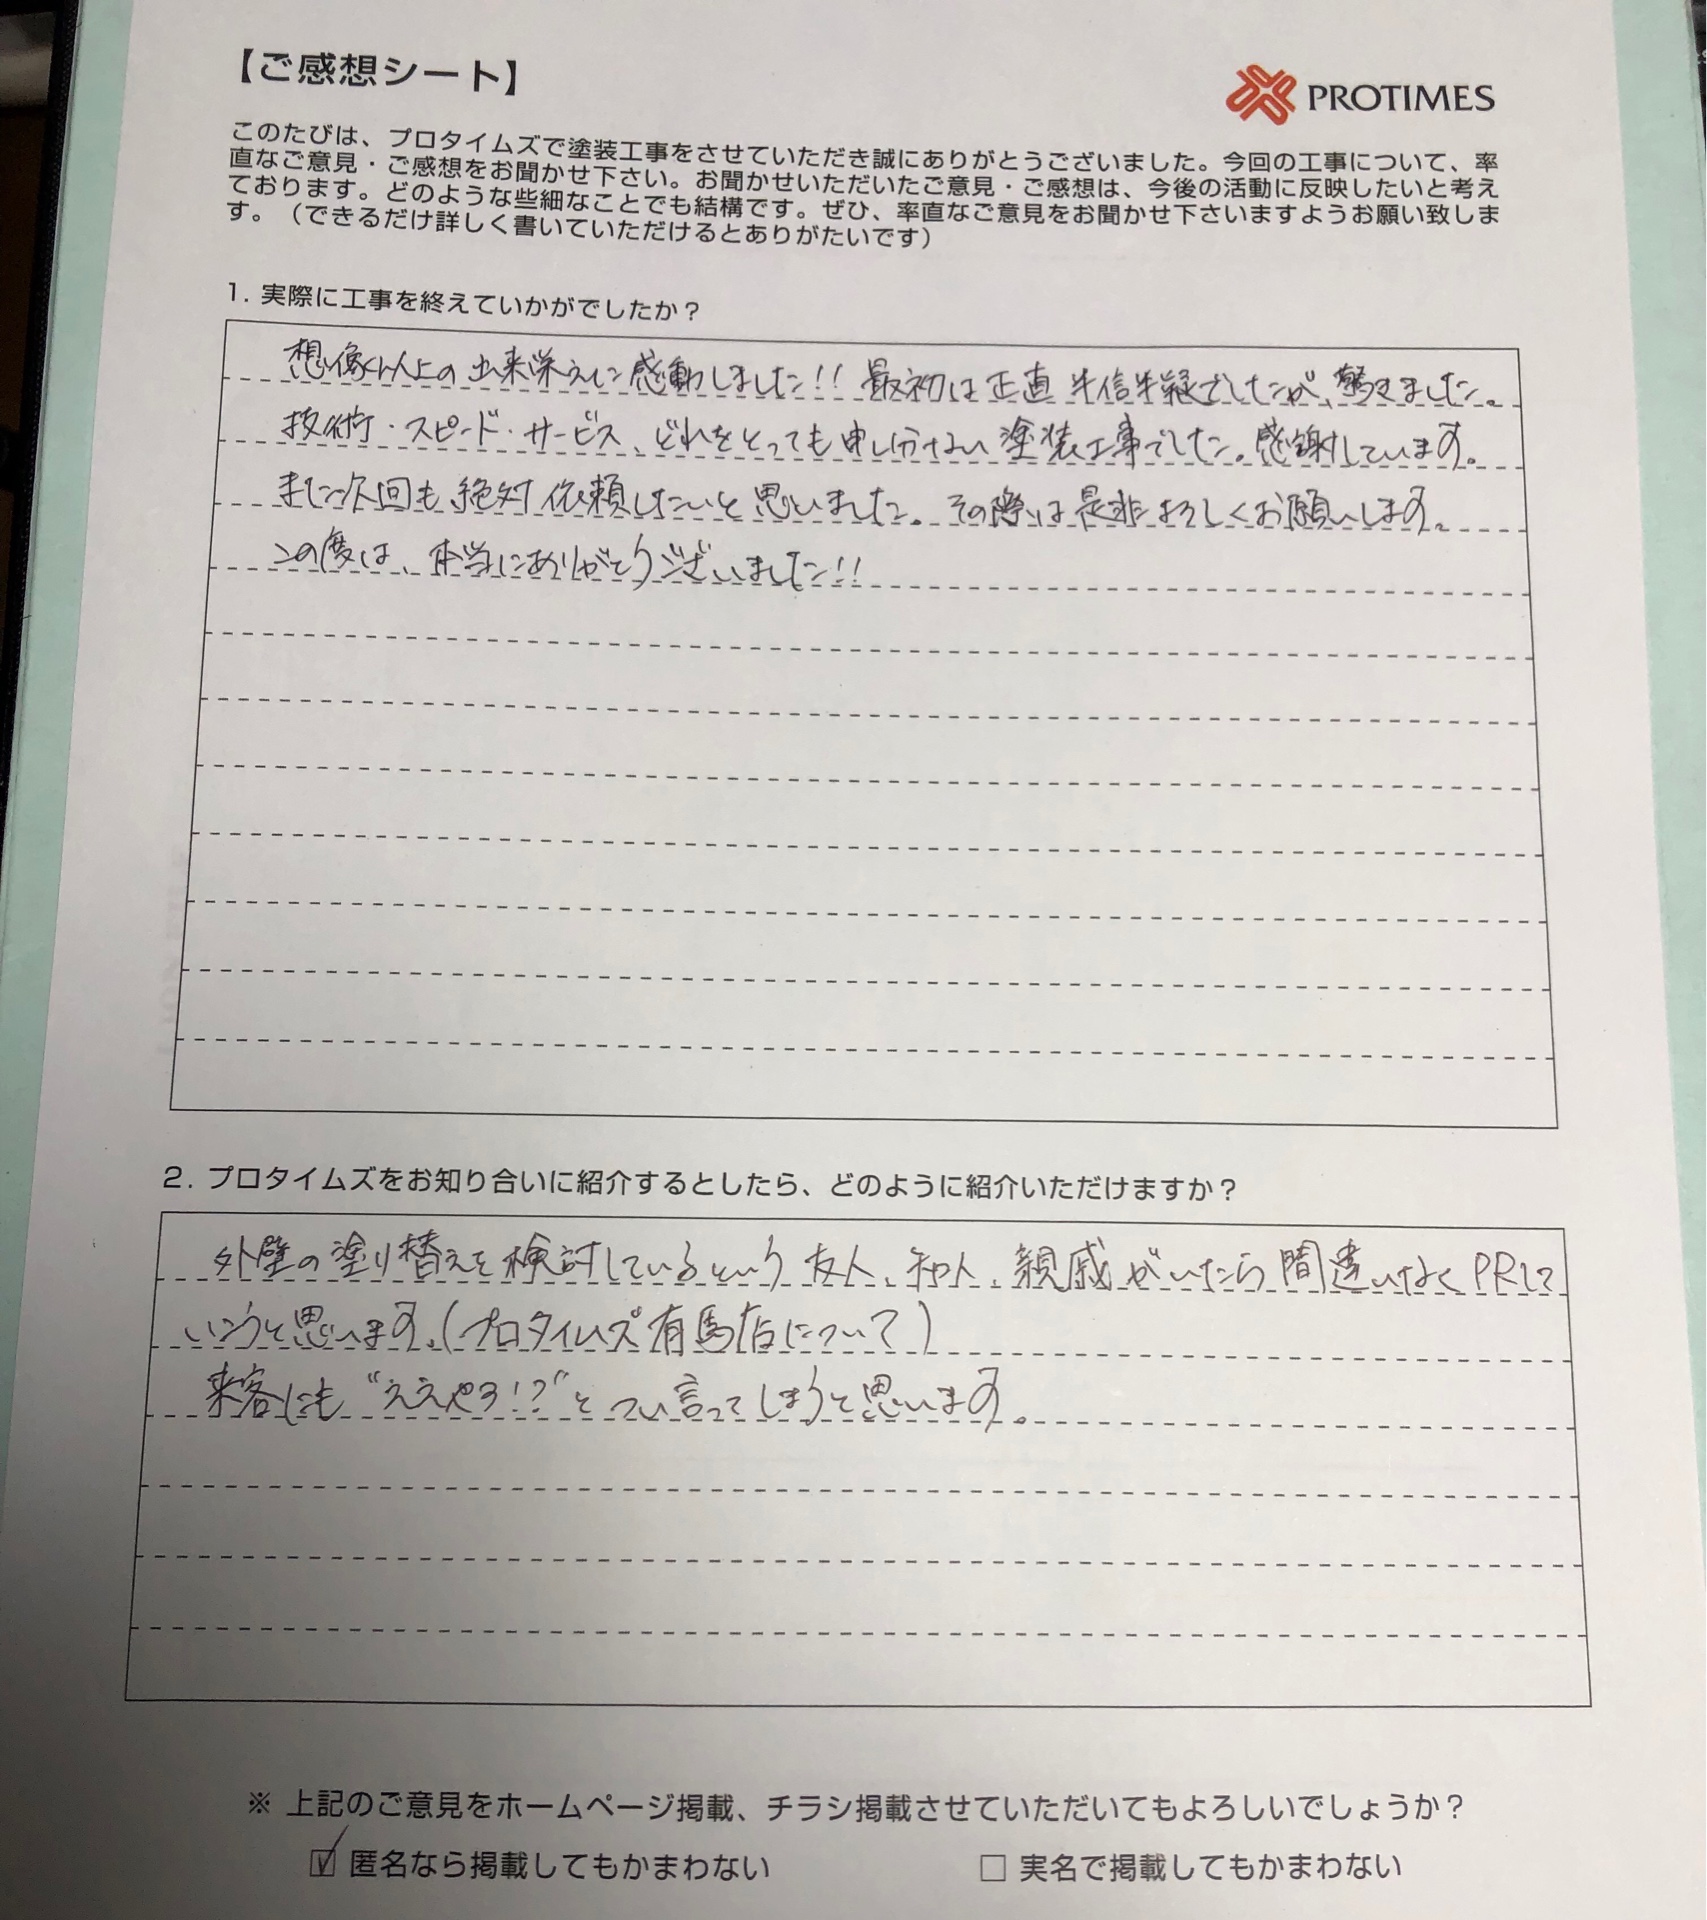 【ご感想シート】
PROTIMES
このたびは、プロタイムズで塗装工事をさせていただき誠にありがとうございました。今回の工事について、率
直なご意見・ご感想をお聞かせ下さい。お聞かせいただいたご意見・ご感想は、今後の活動に反映したいと考え
ております。どのような些細なことでも結構です。ぜひ、率直なご意見をお聞かせ下さいますようお願い致しま
す。（できるだけ詳しく書いていただけるとありがたいです）
1. 実際に工事を終えていかがでしたか？
想像以上の出来栄えに感動しました!! 最初は正直半信半疑でしたが、驚きました。
技術・スピード・サービス、どれをとっても申し分ない塗装工事でした。感謝しています。
また次回も絶対依頼したいと思いました。その際は是非よろしくお願いします。
この度は、本当にありがとうございました!!
2. プロタイムズをお知り合いに紹介するとしたら、どのように紹介いただけますか？
外壁の塗り替えを検討しているという友人、知人、親戚がいたら間違いなくPRして
いこうと思います。(プロタイムズ有馬店について)
来客にも“ええやろ!?”とつい言ってしまうと思います。
※ 上記のご意見をホームページ掲載、チラシ掲載させていただいてもよろしいでしょうか？
☑ 匿名なら掲載してもかまわない □ 実名で掲載してもかまわない